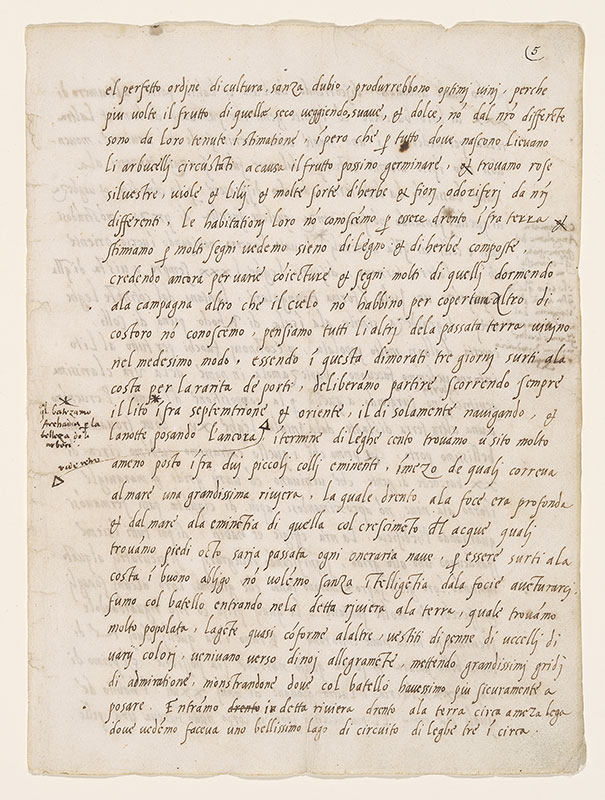 5
el perfetto ordine di cultura, sanza dubio, produrrebbono optimj vinj, perche
piu volte il frutto di quelle seco veggiendo, suave, & dolce, nó dal nrõ differéte
sono da loro tenute í stimatione, ípero che p tutto dove nascono lievano
li arbucellj circústati a causa il frutto possino germinare, & trovamo rose
silvestre, viole & lilij & molte sorte d'herbe & fiorj odoriferj da nrj
differenti, le habitationj loro nó conoscémo p essere drento í fra terra
stimiamo p molti segni vedemo sieno di legno & di herbe composte,
credendo ancora per varie cóiecture & segni molti di quellj dormendo
ala campagna altro che il cielo nó habbino per copertura altro di
costoro nó conoscémo, pensiamo tutti li altrj dela passata terra vivino
nel medesimo modo, essendo í questa dimorati tre giornj surti ala
costa per la rarita de porti, deliberámo partire scorrendo sempre
il lito ífra septemtrione & oriente, il dí solamente navigando, &
la notte posando l'ancora, í termine di leghe cento trovámo ú sito molto
ameno posto ífra dui piccoli collj eminenti, í mezo de quali correva
al mare una grandissima riviera, la quale drento ala foce era profonda
& dal mare ala eminétia di quella col crescimeto dl acque qualj
trovámo piedi octo saria passata ogni oneraria nave, p essere surti ala
costa í buono obligo nó volémo sanza ítelligétia dala focie avéturarcj.
fumo col batello entrando nela détta riviera ala terra, quale trovámo
molto popolata, la géte quasi cóforme al altre, vestiti di penne di uccellj di
varij colorj, venivano verso di noj allegraméte, mettendo grandissimj gridj
di admiratione, monstrandone dove col batello havessimo piu sicuramente a
posare. Entrámo drento in detta riviera drento ala terra circa a meza lega
dove vedémo faceva uno bellissimo lago di circuito di leghe tré í circa.
ql batezamo
Archadia p la
belleza de li
arbori
vide retro